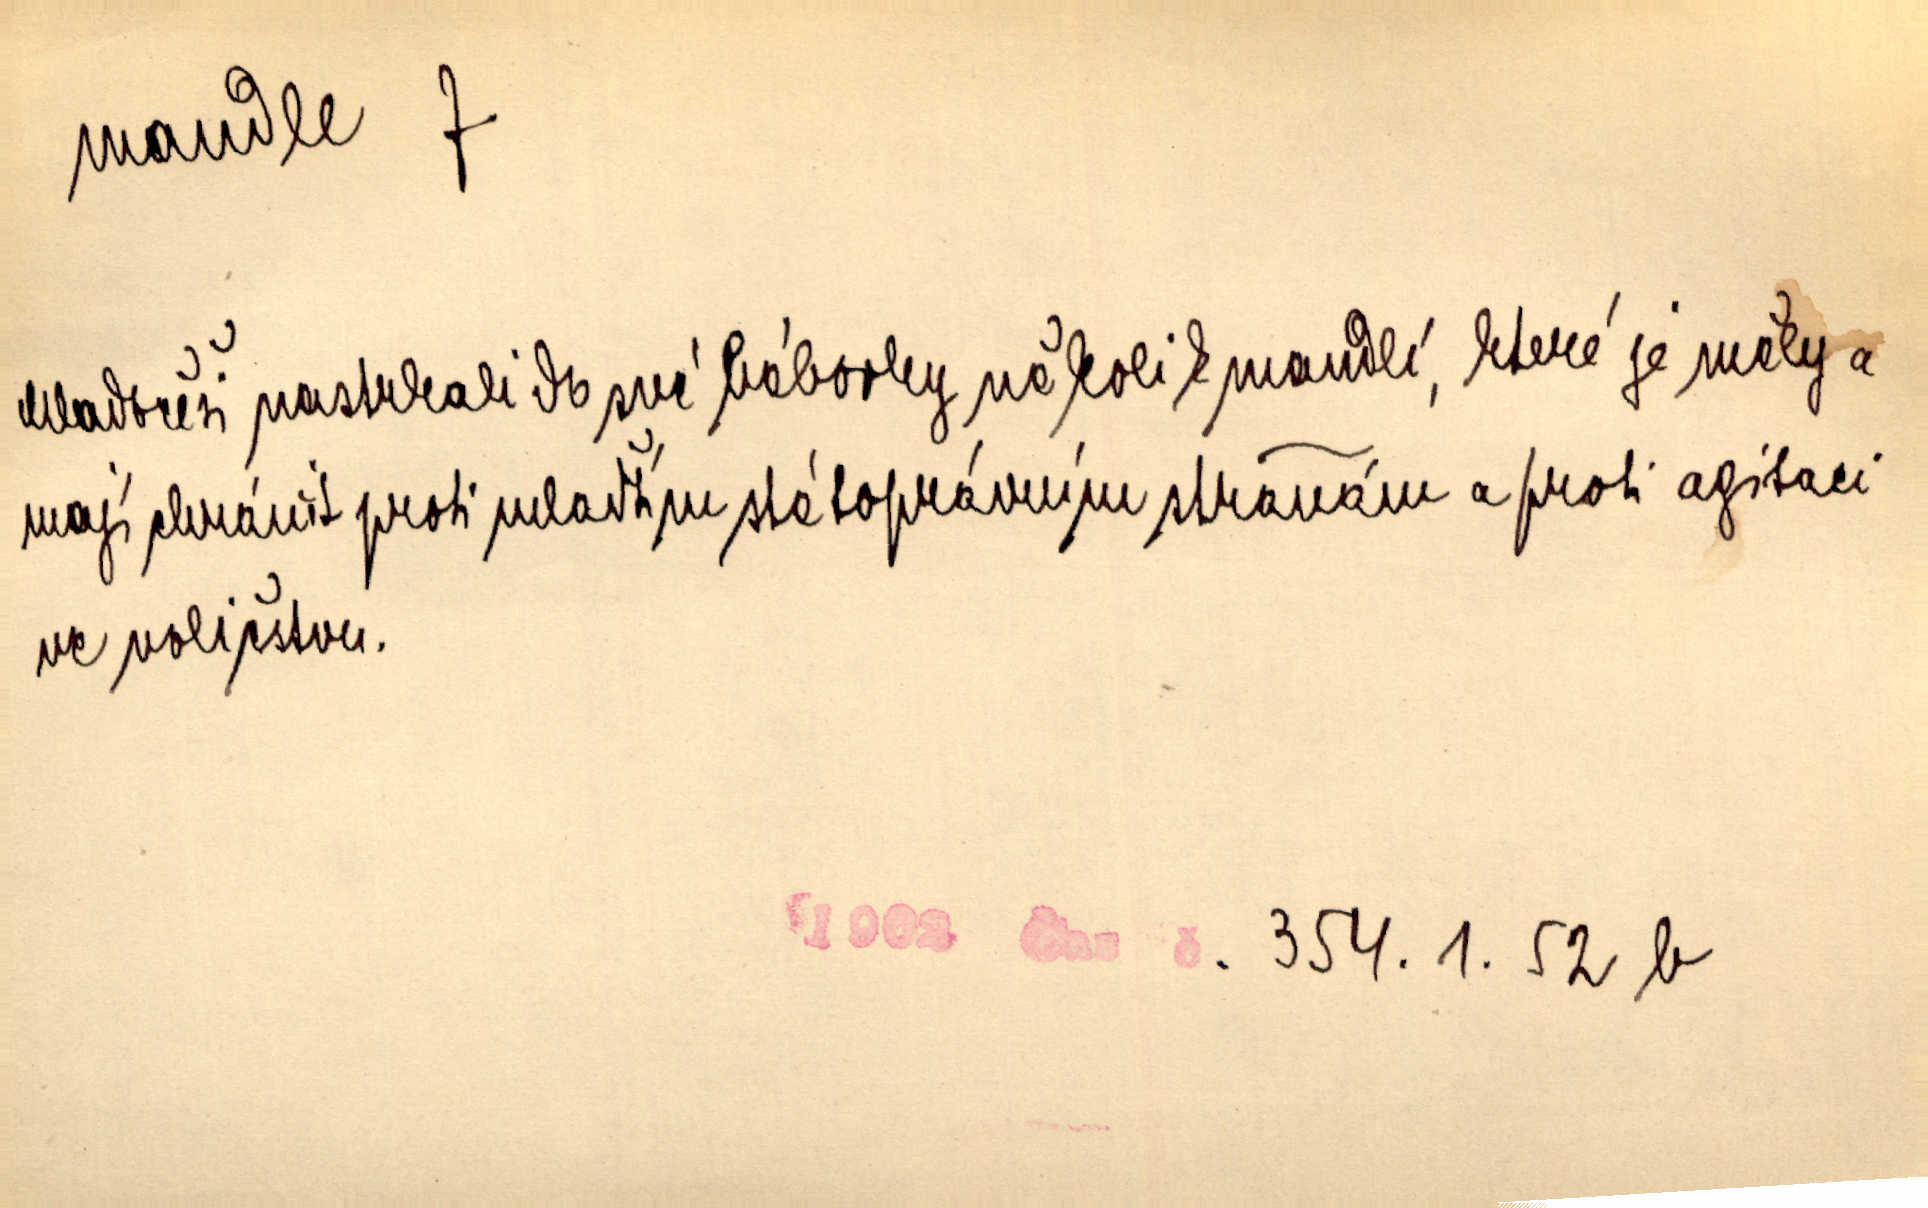 mandle f
mladočeši nastrkali do své bábovky několik mandlí, které je měly a
mají chránit proti mladším státoprávním stranám a proti agitaci
ve voličstvu.
1902 Čas č. 354. 1. 52 b